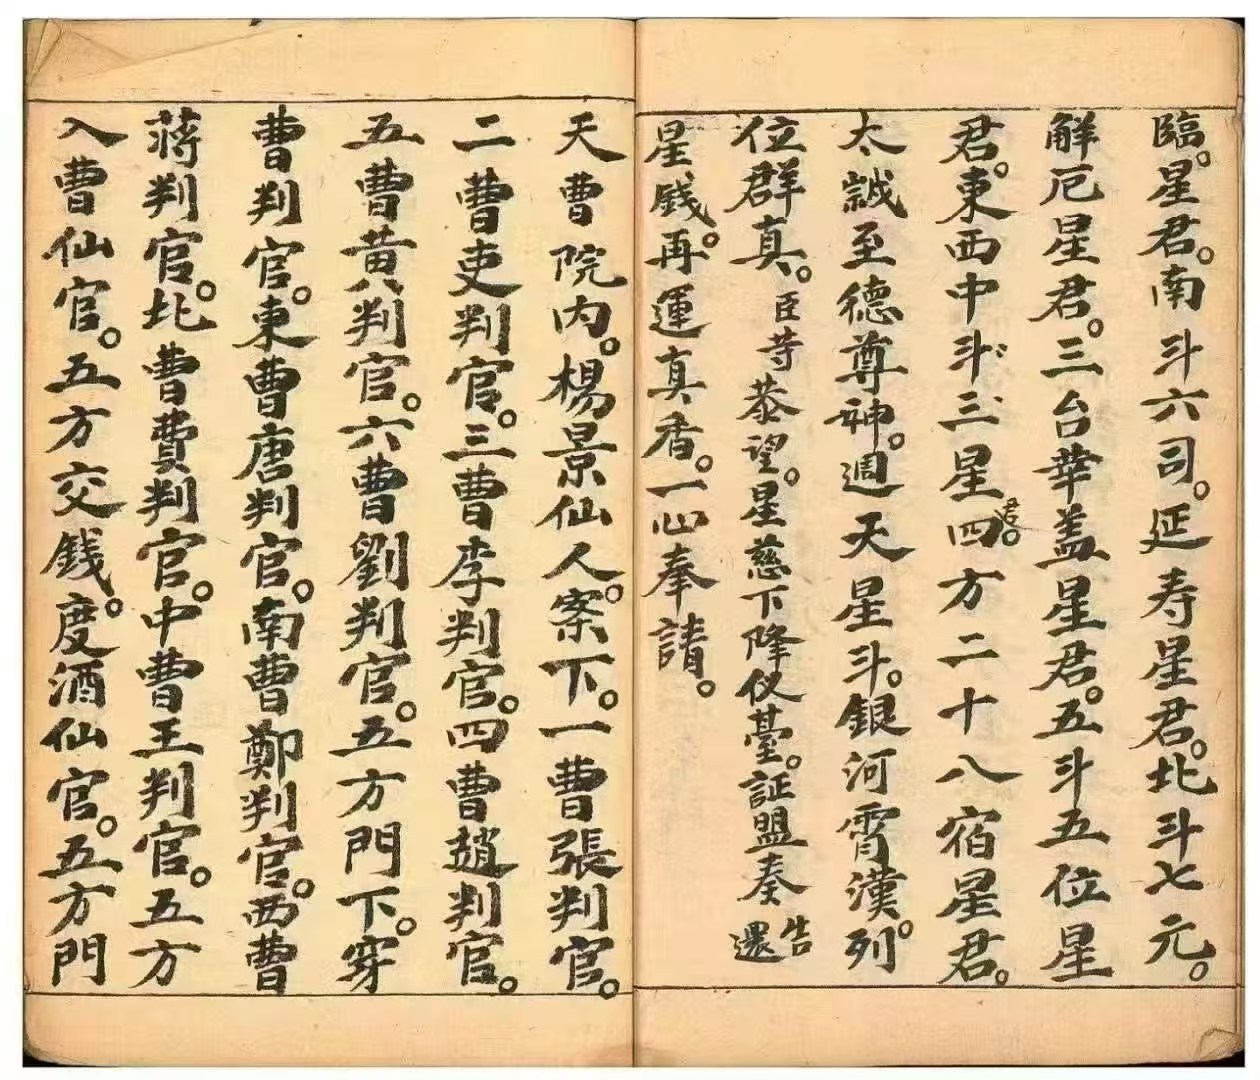 臨。星君。南斗六司。延寿星君。北斗七元。
解厄星君。三台華盖星君。五斗五位星
君。東西中斗。三星君。四方二十八宿星君。
太誠至德尊神。週天星斗。銀河霄漢。列
位群真。臣等恭望。星慈下降仪臺。証盟奏告還
星錢。再運真香。一心奉請。
天曹院内。楊景仙人。案下。一曹張判官。
二曹吏判官。三曹李判官。四曹趙判官。
五曹黄判官。六曹劉判官。五方門下。穿
曹判官。東曹唐判官。南曹鄭判官。西曹
蒋判官。北曹費判官。中曹王判官。五方
入曹仙官。五方交錢。度酒仙官。五方門